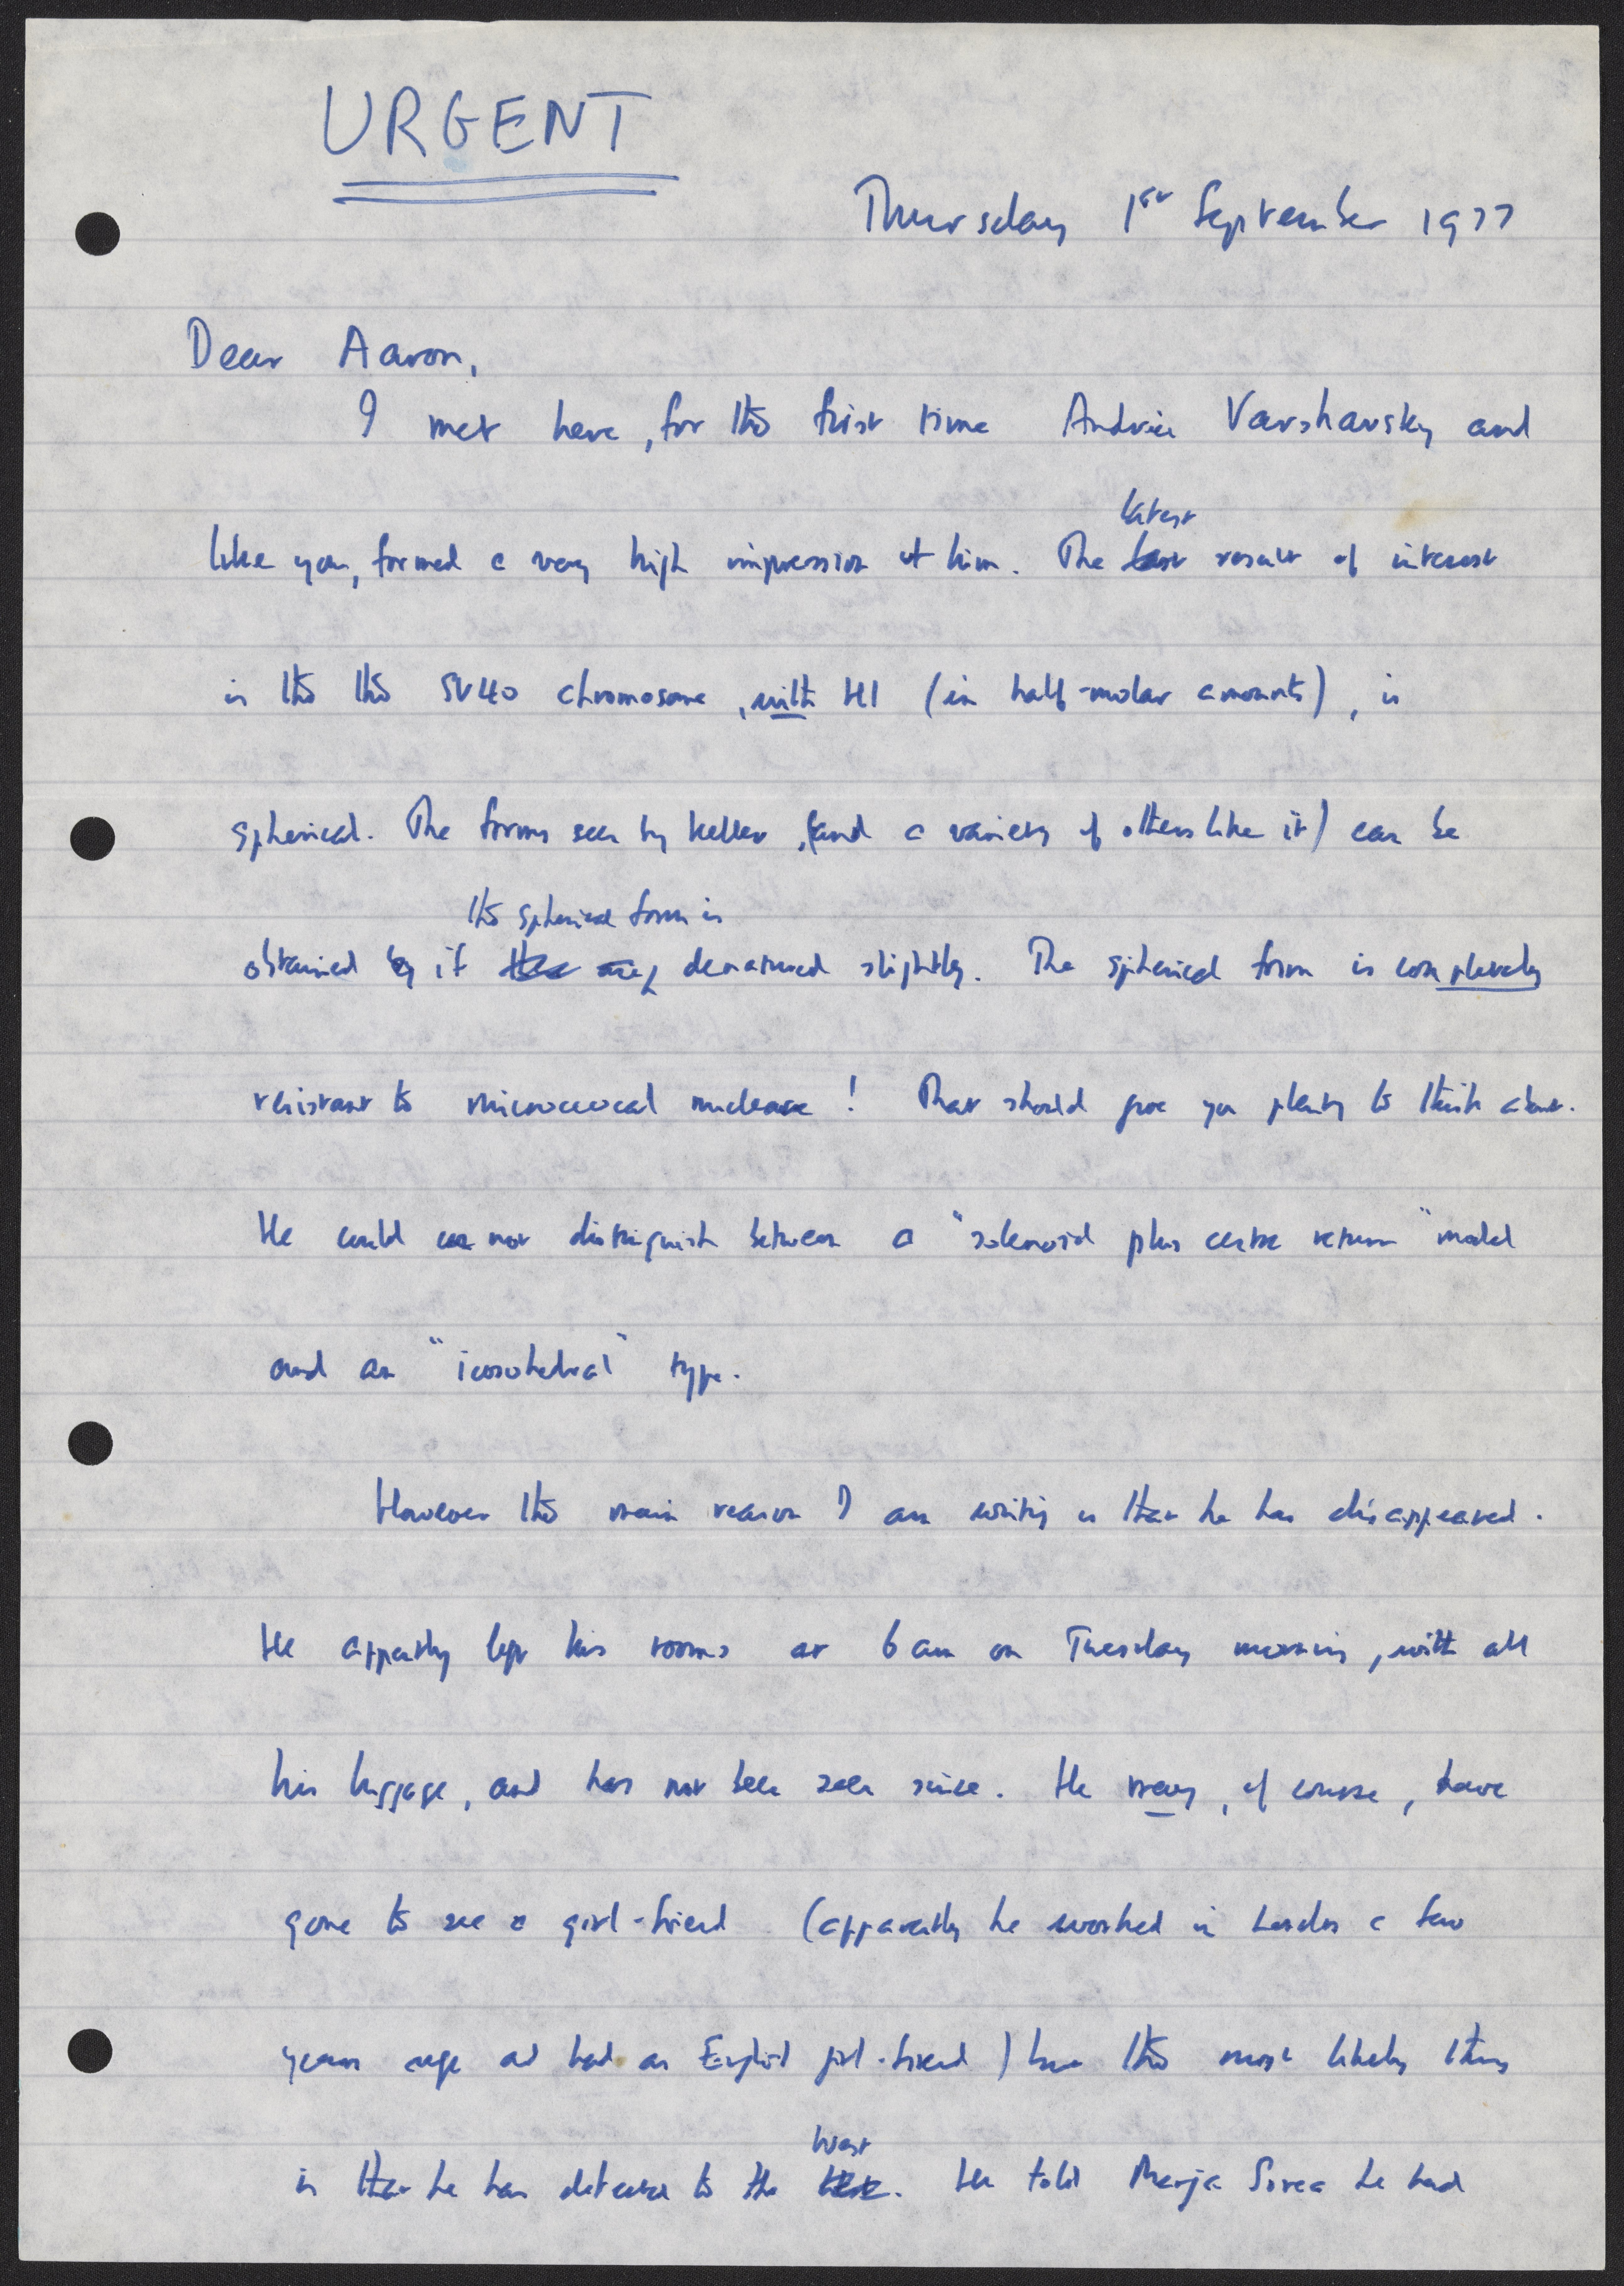 URGENT
Thursday 1st September 1977
Dear Aaron,
I met here, for the first time Andrei Varshavsky and
latest
like you, formed a very high impression of him. The last result of interest
is the the SV40 chromosome, with H1 (in half-molar amounts), is
spherical. The forms seen by Keller, (and a variety of others like it) can be
the spherical form is
obtained by if denatured slightly. The spherical form is completely
resistant to micrococcal nuclease! That should give you plenty to think about.
He could not distinguish between a "solenoid plus centre return" model
and an "icosohedral" type.
However the main reason I am writing is that he has disappeared.
He appartly left his rooms at 6 am on Tuesday morning, with all
his luggage, and has not been seen since. He may, of course, have
gone to see a girl-friend (apparently he worked in London a few
years ago and had an English girl-friend) but the most likely thing
West
is that he has defected to the. He told Marja Sorsa he had